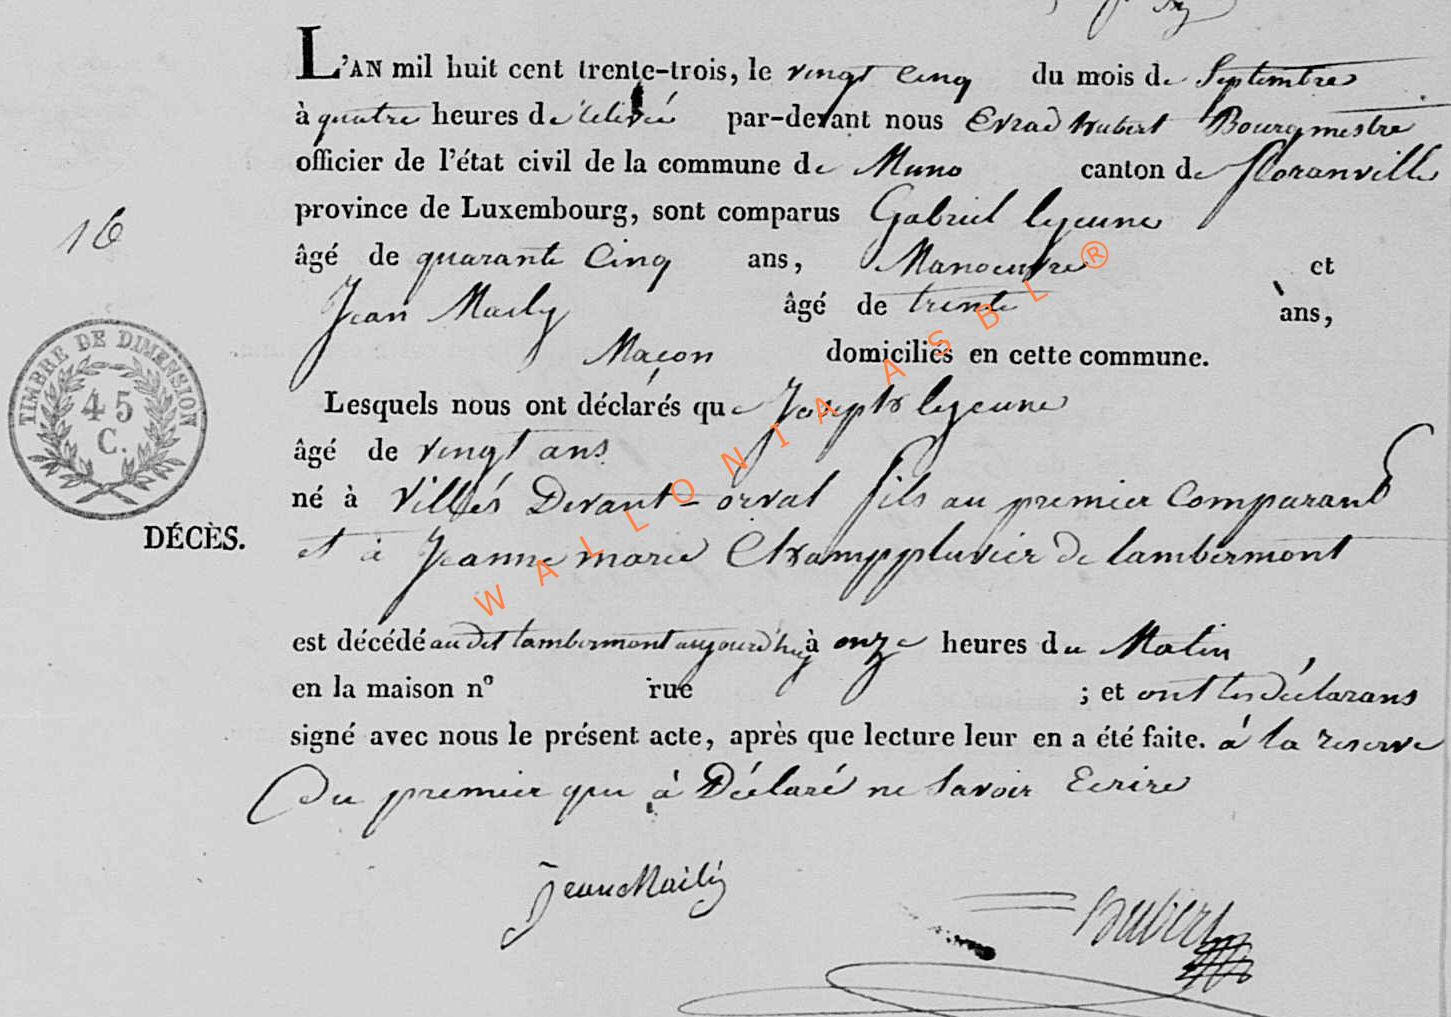 L'AN mil huit cent trente-trois, le vingt cinq du mois de Septembre
à quatre heures de relevée par-devant nous Evrad hubert Bourgmestre
officier de l'état civil de la commune de Muno canton de floranville
province de Luxembourg, sont comparus Gabriel lejeune
16
âgé de quarante Cinq ans, Manoeuvre et
Jean Maily âgé de trente ans,
Maçon domiciliés en cette commune.
TIMBRE DE DIMENSION
45
C.
Lesquels nous ont déclarés que Joseph lejeune
âgé de vingt ans
né à Villés Devant-orval fils au premier Comparant
DÉCÈS.
et à Jeanne marie Champpluvier de lambermont
est décédé au dit lambermont aujourd'huy à onze heures du Matin
en la maison nº rue ; et ont les déclarans
signé avec nous le présent acte, après que lecture leur en a été faite. à la reserve
Du premier qui à Déclaré ne Savoir Ecrire
Jean Maily
Hubert
WALLONIA ASBL ®